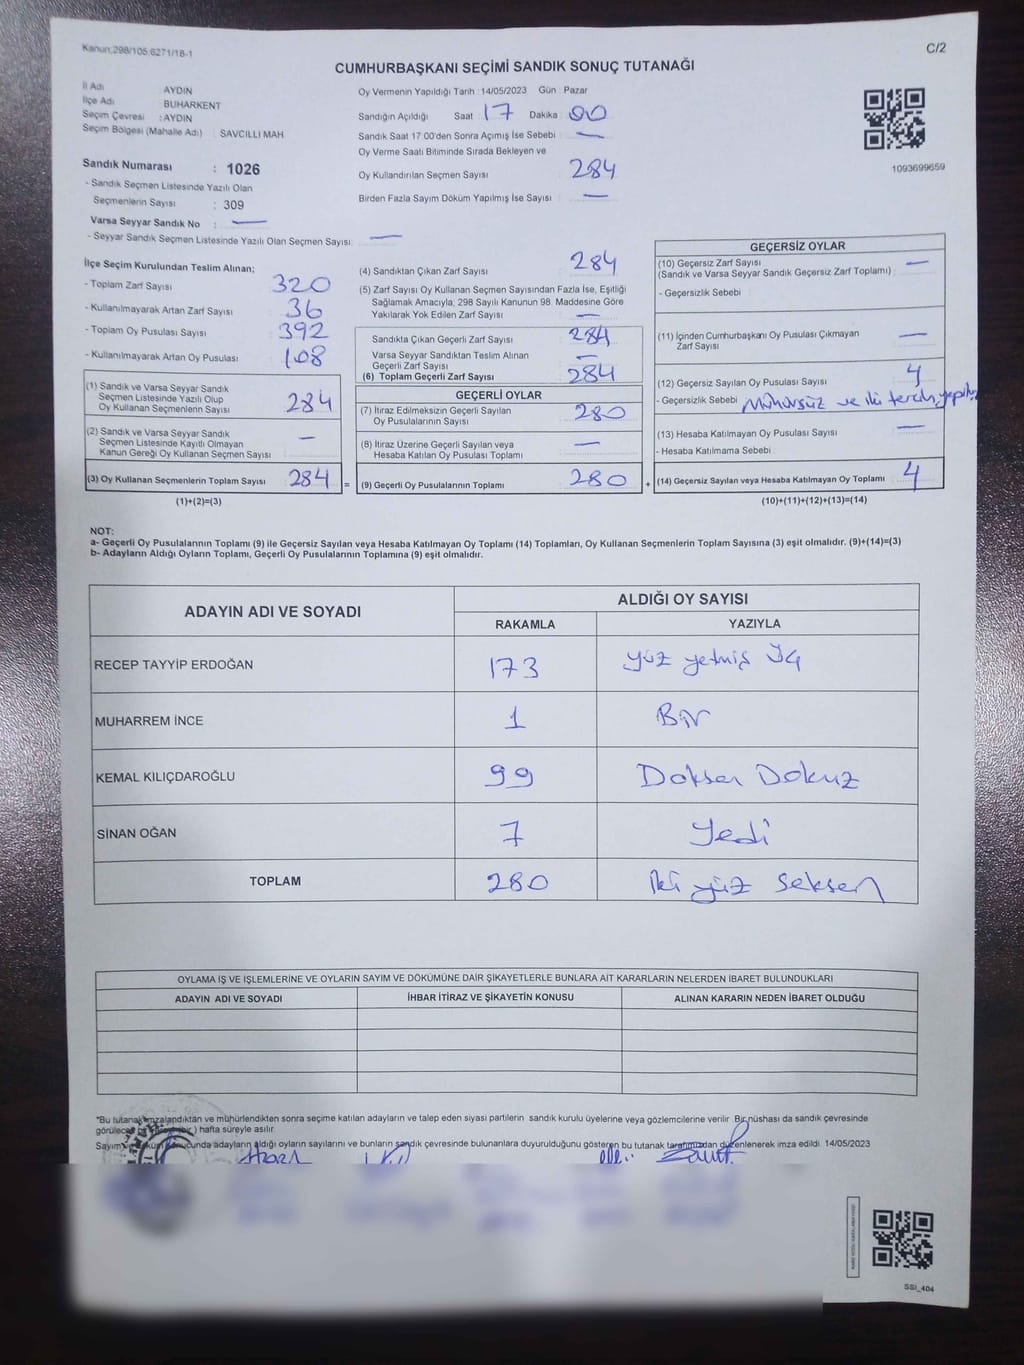 Kanun:298/105,6271/18-1
C/2
CUMHURBAŞKANI SEÇİMİ SANDIK SONUÇ TUTANAĞI
İl Adı AYDIN
İlçe Adı BUHARKENT
Seçim Çevresi : AYDIN
Seçim Bölgesi (Mahalle Adı) : SAVCILLI MAH
Sandık Numarası : 1026
- Sandık Seçmen Listesinde Yazılı Olan
Seçmenlerin Sayısı : 309
Varsa Seyyar Sandık No : —
- Seyyar Sandık Seçmen Listesinde Yazılı Olan Seçmen Sayısı: —
Oy Vermenin Yapıldığı Tarih : 14/05/2023 Gün : Pazar
Sandığın Açıldığı Saat : 17 Dakika : 00
Sandık Saat 17:00'den Sonra Açımış İse Sebebi : —
Oy Verme Saati Bitiminde Sırada Bekleyen ve
Oy Kullandırılan Seçmen Sayısı : 284
Birden Fazla Sayım Döküm Yapılmış İse Sayısı : —
1093699659
İlçe Seçim Kurulundan Teslim Alınan;
- Toplam Zarf Sayısı : 320
- Kullanılmayarak Artan Zarf Sayısı : 36
- Toplam Oy Pusulası Sayısı : 392
- Kullanılmayarak Artan Oy Pusulası : 108
(1) Sandık ve Varsa Seyyar Sandık
Seçmen Listesinde Yazılı Olup
Oy Kullanan Seçmenlerin Sayısı : 284
(2) Sandık ve Varsa Seyyar Sandık
Seçmen Listesinde Kayıtlı Olmayan
Kanun Gereği Oy Kullanan Seçmen Sayısı : —
(3) Oy Kullanan Seçmenlerin Toplam Sayısı : 284 =
(1)+(2)=(3)
(4) Sandıktan Çıkan Zarf Sayısı : 284
(5) Zarf Sayısı Oy Kullanan Seçmen Sayısından Fazla İse, Eşitliği
Sağlamak Amacıyla, 298 Sayılı Kanunun 98. Maddesine Göre
Yakılarak Yok Edilen Zarf Sayısı : —
Sandıkta Çıkan Geçerli Zarf Sayısı : 284
Varsa Seyyar Sandıktan Teslim Alınan
Geçerli Zarf Sayısı : —
(6) Toplam Geçerli Zarf Sayısı : 284
GEÇERLİ OYLAR
(7) İtiraz Edilmeksizin Geçerli Sayılan
Oy Pusulalarının Sayısı : 280
(8) İtiraz Üzerine Geçerli Sayılan veya
Hesaba Katılan Oy Pusulası Toplamı : —
(9) Geçerli Oy Pusulalarının Toplamı : 280 +
GEÇERSİZ OYLAR
(10) Geçersiz Zarf Sayısı : —
(Sandık ve Varsa Seyyar Sandık Geçersiz Zarf Toplamı)
- Geçersizlik Sebebi :
(11) İçinden Cumhurbaşkanı Oy Pusulası Çıkmayan
Zarf Sayısı : —
(12) Geçersiz Sayılan Oy Pusulası Sayısı : 4
- Geçersizlik Sebebi : Mühürsüz ve iki tercih
(13) Hesaba Katılmayan Oy Pusulası Sayısı : —
- Hesaba Katılmama Sebebi :
(14) Geçersiz Sayılan veya Hesaba Katılmayan Oy Toplamı : 4
(10)+(11)+(12)+(13)=(14)
NOT:
a- Geçerli Oy Pusulalarının Toplamı (9) ile Geçersiz Sayılan veya Hesaba Katılmayan Oy Toplamı (14) Toplamları, Oy Kullanan Seçmenlerin Toplam Sayısına (3) eşit olmalıdır. (9)+(14)=(3)
b- Adayların Aldığı Oyların Toplamı, Geçerli Oy Pusulalarının Toplamına (9) eşit olmalıdır.
ADAYIN ADI VE SOYADI
ALDIĞI OY SAYISI
RAKAMLA YAZIYLA
RECEP TAYYİP ERDOĞAN 173 Yüz yetmiş Üç
MUHARREM İNCE 1 Bir
KEMAL KILIÇDAROĞLU 99 Doksan Dokuz
SİNAN OĞAN 7 Yedi
TOPLAM 280 İki yüz seksen
OYLAMA İŞ VE İŞLEMLERİNE VE OYLARIN SAYIM VE DÖKÜMÜNE DAİR ŞİKAYETLERLE BUNLARA AİT KARARLARIN NELERDEN İBARET BULUNDUKLARI
ADAYIN ADI VE SOYADI İHBAR İTİRAZ VE ŞİKAYETİN KONUSU ALINAN KARARIN NEDEN İBARET OLDUĞU
*Bu tutanak imzalandıktan ve mühürlendikten sonra seçime katılan adayların ve talep eden siyasi partilerin sandık kurulu üyelerine veya gözlemcilerine verilir. Bir nüshası da sandık çevresinde
görülecek bir (bir) hafta süreyle asılır.
Sayım ve döküm sonucunda adayların aldığı oyların sayılarını ve bunların sandık çevresinde bulunanlara duyurulduğunu gösteren bu tutanak tarafımızdan düzenlenerek imza edildi. 14/05/2023
SSI_404